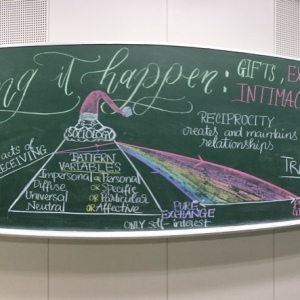 ng it happen: GIFTS, EX
INTIMAC
RECIPROCITY
creates and maintains
relationships
SOCIOLOGY
acts of
RECEIVING
PATTERN
VARIABLES
Impersonal or Personal
Diffuse or Specific
Universal or Particular
Neutral or Affective
TR
PURE
EXCHANGE
ONLY self-interest